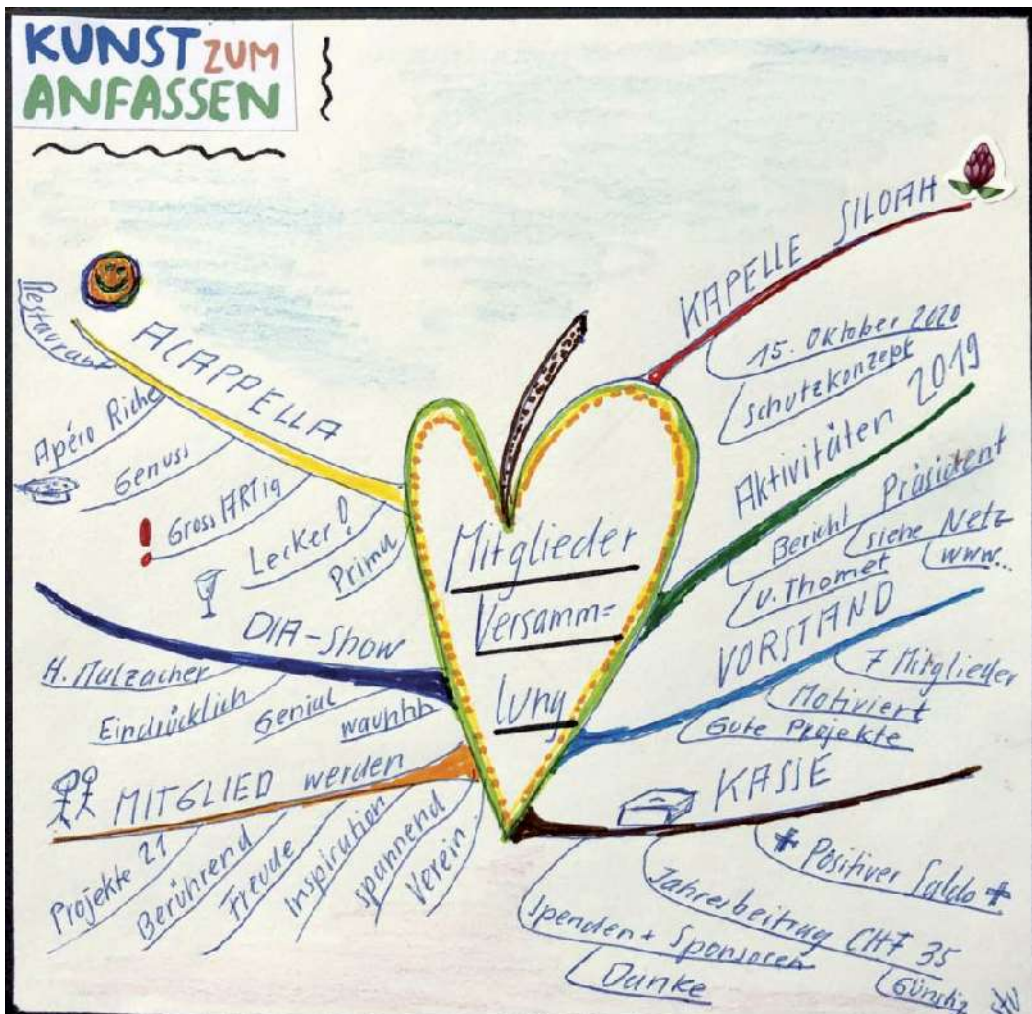 KUNST ZUM
ANFASSEN
KAPELLE SILOAH
15. Oktober 2020
Schutzkonzept
Aktivitäten 2019
Bericht Präsident
U. Thomet
siehe Netz
www...
VORSTAND
7 Mitglieder
Motiviert
Gute Projekte
KASSE
+ Positiver Saldo +
Jahresbeitrag CHF 35
Günstig
Spenden + Sponsoren
Danke
Mitglieder
Versamm=
lung
ACAPPELLA
Restaurant
Apéro Riche
Genuss
GrossARTig
!
Lecker!
Prima
DIA-Show
H. Mulzacher
Eindrücklich
Genial
wauhhh
MITGLIED werden
Projekte 21
Berührend
Freude
Inspiration
spannend
Verein